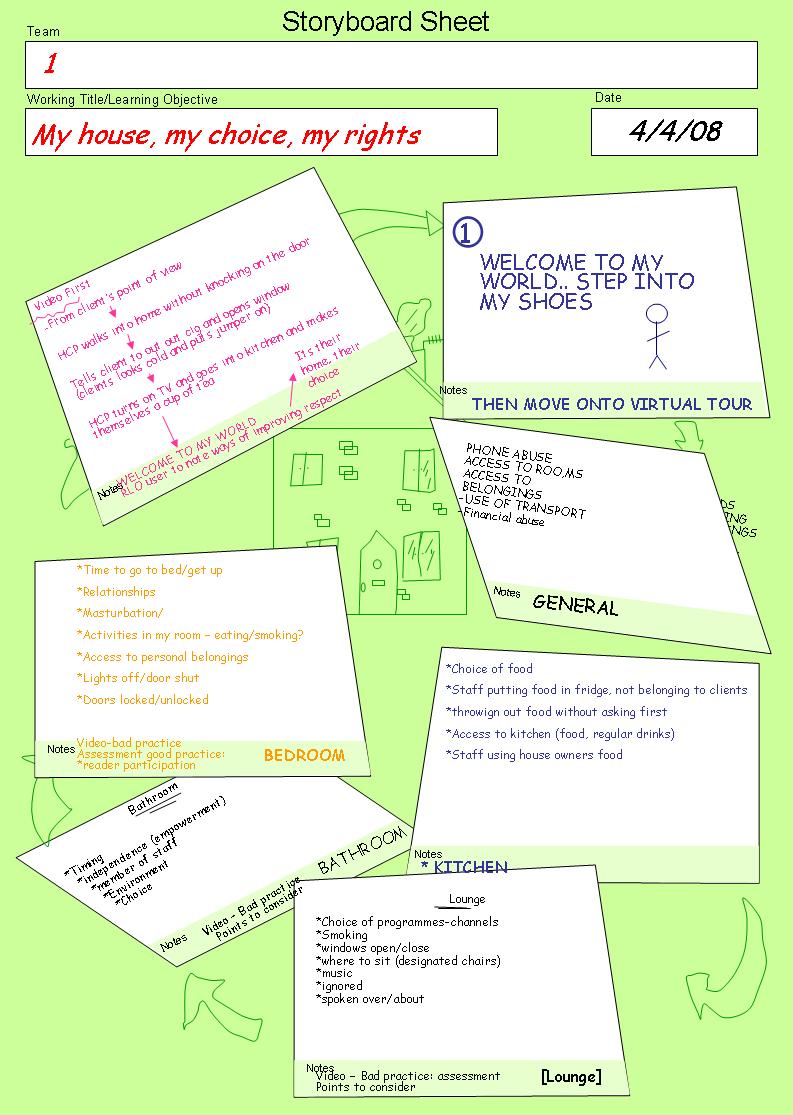 Storyboard Sheet
Team
1
Working Title/Learning Objective
My house, my choice, my rights
Date
4/4/08
Video First
-From client's point of view
HCP walks into home without knocking on the door
Tells client to out out cig and opens window
(cleints looks cold and puts jumper on)
HCP turns on TV and goes into kitchen and makes
themselves a cup of tea
It's their
home, their
choice
WELCOME TO MY WORLD
RLO user to note ways of improving respect
Notes
1
WELCOME TO MY
WORLD.. STEP INTO
MY SHOES
Notes
THEN MOVE ONTO VIRTUAL TOUR
PHONE ABUSE
ACCESS TO ROOMS
ACCESS TO
BELONGINGS
-USE OF TRANSPORT
-Financial abuse
Notes
GENERAL
*Choice of food
*Staff putting food in fridge, not belonging to clients
*throwign out food without asking first
*Access to kitchen (food, regular drinks)
*Staff using house owners food
Notes
* KITCHEN
Lounge
*Choice of programmes-channels
*Smoking
*windows open/close
*where to sit (designated chairs)
*music
*ignored
*spoken over/about
Notes
Video - Bad practice: assessment
Points to consider
[Lounge]
Bathroom
*Timing
*independence (empowerment)
*member of staff
*Environment
*Choice
Notes
Video - Bad practice
Points to consider
BATHROOM
*Time to go to bed/get up
*Relationships
*Masturbation/
*Activities in my room - eating/smoking?
*Access to personal belongings
*Lights off/door shut
*Doors locked/unlocked
Notes
Video-bad practice
Assessment good practice:
*reader participation
BEDROOM